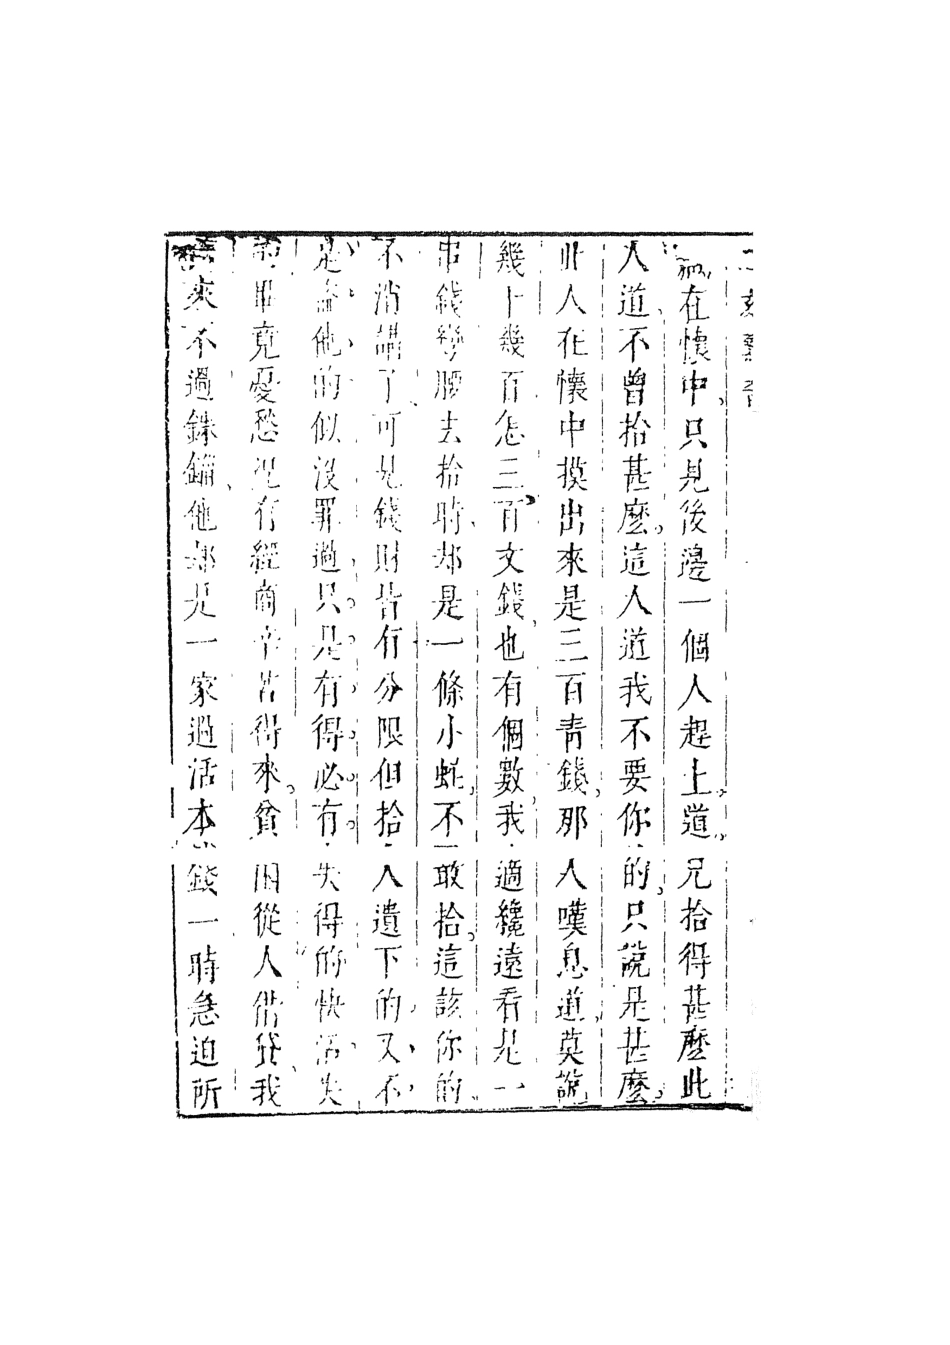 在懷中只見後邊一個人趕上道兄拾得甚麼此
人道不曾拾甚麼這人道我不要你的只說是甚麼
此人在懷中摸出來是三百靑錢那人嘆息道莫說
幾十幾百怎三百文錢也有個數我適纔遠看是一
串錢彎腰去拾時却是一條小蛇不敢拾這該你的
不消講了可見錢財皆有分限但拾人遺下的又不
是論他的似沒罪過只是有得必有失得的快活失
的畢竟憂愁況有經商辛苦得來貧困從人借貸我
來不過銖錙他却是一家過活本錢一時急迫所